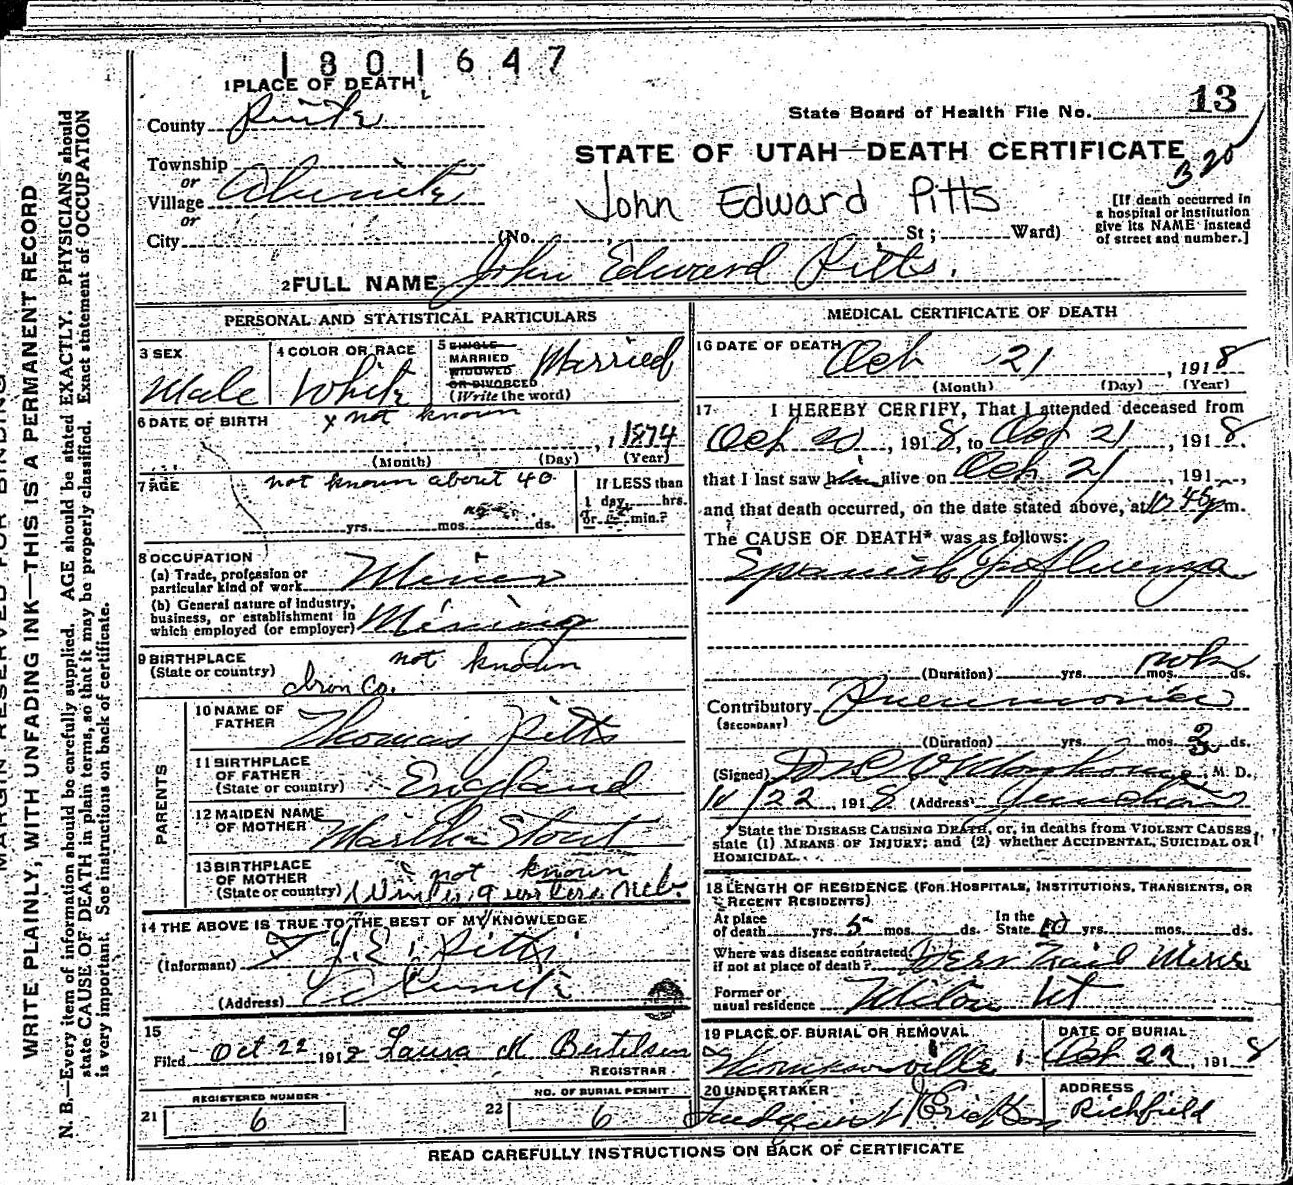 1801647
1 PLACE OF DEATH
State Board of Health File No. 13
County Piute
STATE OF UTAH—DEATH CERTIFICATE
320
Township
or
Village Alunite
or
John Edward Pitts
[If death occurred in
a hospital or institution
give its NAME instead
of street and number.]
City (No. St; Ward)
2 FULL NAME John Edward Pitts.
PERSONAL AND STATISTICAL PARTICULARS
3 SEX
Male
4 COLOR OR RACE
White
5 SINGLE
MARRIED
WIDOWED
OR DIVORCED
(Write the word)
Married
6 DATE OF BIRTH x not known
, 1874
(Month) (Day) (Year)
7 AGE not known about 40
yrs. mos. ds.
If LESS than
1 day hrs.
or min.?
8 OCCUPATION
(a) Trade, profession or
particular kind of work Miner
(b) General nature of industry,
business, or establishment in
which employed (or employer) Mining
9 BIRTHPLACE
(State or country) not known
Iron Co.
PARENTS
10 NAME OF
FATHER Thomas Pitts
11 BIRTHPLACE
OF FATHER
(State or country) England
12 MAIDEN NAME
OF MOTHER Martha Stout
13 BIRTHPLACE
OF MOTHER
(State or country) not known
Winter Quarters, Neb.
14 THE ABOVE IS TRUE TO THE BEST OF MY KNOWLEDGE
(Informant) J. E. Pitts
(Address) Alunite
15
Filed Oct 22 1918 Laura M Bertelsen
REGISTRAR
21 REGISTERED NUMBER
6
22 NO. OF BURIAL PERMIT
6
MEDICAL CERTIFICATE OF DEATH
16 DATE OF DEATH
Oct 21, 1918
(Month) (Day) (Year)
17 I HEREBY CERTIFY, That I attended deceased from
Oct 20, 1918, to Oct 21, 1918.
that I last saw him alive on Oct 21, 191
and that death occurred, on the date stated above, at 10 45 pm.
The CAUSE OF DEATH* was as follows:
Spanish Influenza
(Duration) yrs. mos. ds.
Contributory Pneumonia
(SECONDARY)
(Duration) yrs. mos. 3 ds.
(Signed) M. D.
10/22, 1918 (Address) Junction
* State the DISEASE CAUSING DEATH, or, in deaths from VIOLENT CAUSES,
state (1) MEANS OF INJURY; and (2) whether ACCIDENTAL, SUICIDAL OR
HOMICIDAL.
18 LENGTH OF RESIDENCE (FOR HOSPITALS, INSTITUTIONS, TRANSIENTS, OR
RECENT RESIDENTS)
At place
of death yrs. 5 mos. ds.
In the
State yrs. mos. ds.
Where was disease contracted,
if not at place of death? Deer Trail Mine
Former or
usual residence
19 PLACE OF BURIAL OR REMOVAL
DATE OF BURIAL
Oct 22, 1918
20 UNDERTAKER
ADDRESS
Richfield
READ CAREFULLY INSTRUCTIONS ON BACK OF CERTIFICATE
MARGIN RESERVED FOR BINDING
WRITE PLAINLY, WITH UNFADING INK—THIS IS A PERMANENT RECORD
N. B.—Every item of information should be carefully supplied. AGE should be stated EXACTLY. PHYSICIANS should
state CAUSE OF DEATH in plain terms, so that it may be properly classified. Exact statement of OCCUPATION
is very important. See instructions on back of certificate.